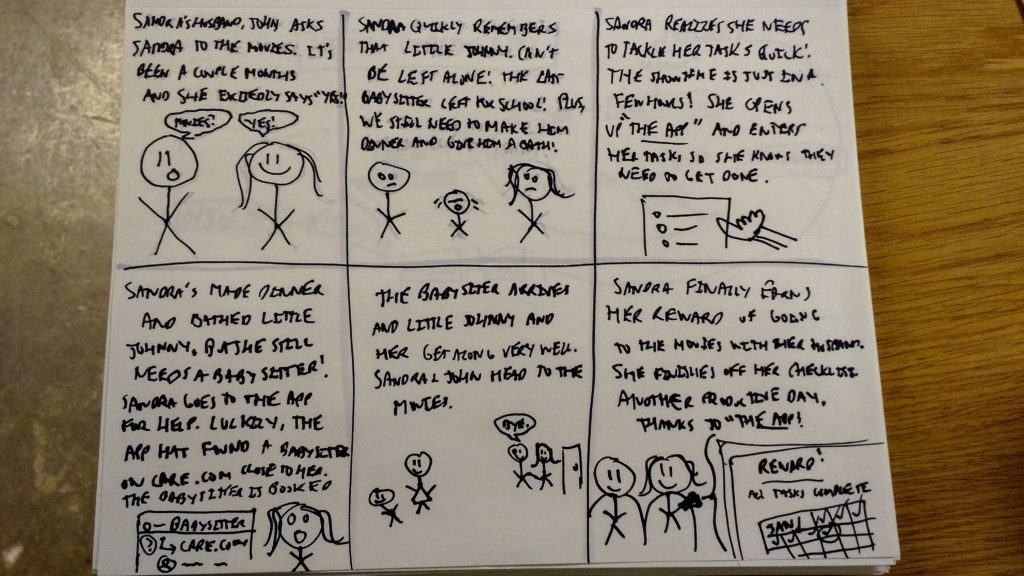 SANDRA'S HUSBAND, JOHN ASKS
SANDRA TO THE MOVIES. IT'S
BEEN A COUPLE MONTHS
AND SHE EXCITEDLY SAYS "YES!"
MOVIES?
YES!
SANDRA QUICKLY REMEMBERS
THAT LITTLE JOHNNY. CAN'T
BE LEFT ALONE! THE LAST
BABYSITTER LEFT FOR SCHOOL! PLUS,
WE STILL NEED TO MAKE HIM
DINNER AND GIVE HIM A BATH!
SANDRA REALIZES SHE NEEDS
TO TACKLE HER TASKS QUICK!
THE SHOWTIME IS JUST IN A
FEW HOURS! SHE OPENS
UP "THE APP" AND ENTERS
HER TASKS SO SHE KNOWS THEY
NEED TO GET DONE.
SANDRA'S MADE DINNER
AND BATHED LITTLE
JOHNNY, BUT SHE STILL
NEEDS A BABYSITTER!
SANDRA GOES TO THE APP
FOR HELP. LUCKILY, THE
APP HAT FOUND A BABYSITTER
ON CARE.COM CLOSE TO HER.
THE BABYSITTER IS BOOKED
BABYSITTER
CARE.COM
THE BABYSITTER ARRIVES
AND LITTLE JOHNNY AND
HER GET ALONG VERY WELL.
SANDRA & JOHN HEAD TO THE
MOVIES.
BYE.
SANDRA FINALLY EARNS
HER REWARD OF GOING
TO THE MOVIES WITH HER HUSBAND.
SHE FINISHES OFF HER CHECKLIST
ANOTHER PRODUCTIVE DAY,
THANKS TO "THE APP!
REWARD!
ALL TASKS COMPLETE
JAN